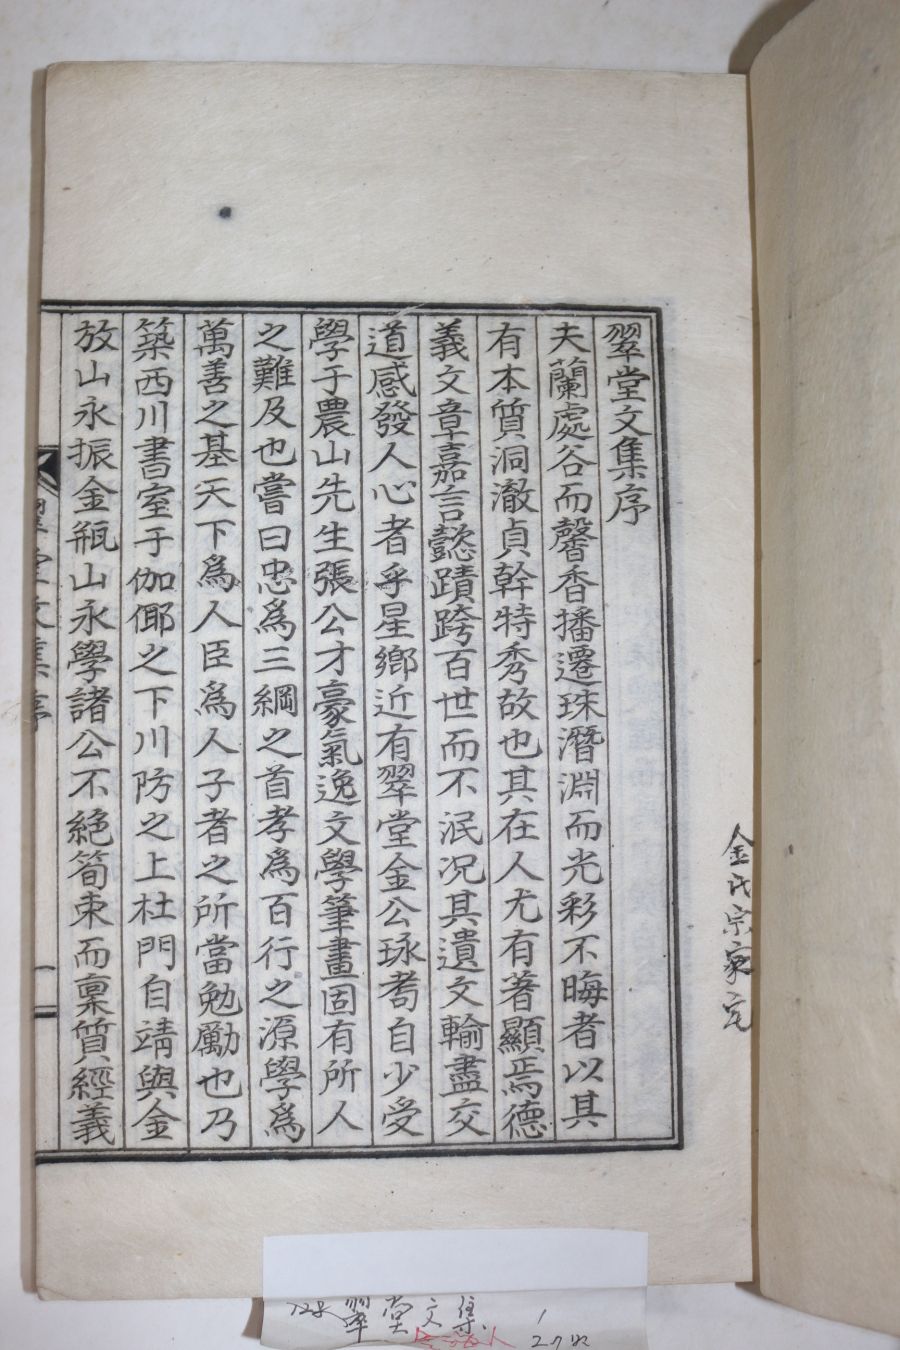 翠堂文集序
夫蘭處谷而馨香播遷珠潛淵而光彩不晦者以其
有本質洞澈貞幹特秀故也其在人尤有著顯焉德
義文章嘉言懿蹟跨百世而不泯况其遺文輸盡交
道感發人心者乎星鄉近有翠堂金公琢耈自少受
學于農山先生張公才豪氣逸文學筆畫固有所人
之難及也嘗曰忠爲三綱之首孝爲百行之源學爲
萬善之基天下爲人臣爲人子者之所當勉勵也乃
築西川書室于伽倻之下川防之上杜門自靖與金
放山永振金甁山永學諸公不絶筍束而稟質經義
翠堂文集序
一
金氏宗家宅
翠堂文集